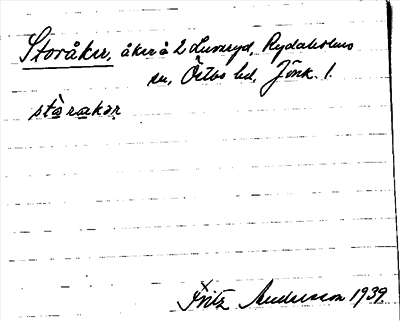 Storåker, åker å 2 Lunnryd, Rydaholms
sn, Östbo hd, Jönk. l.
stɷ̀rakər
Fritz Andersson 1939